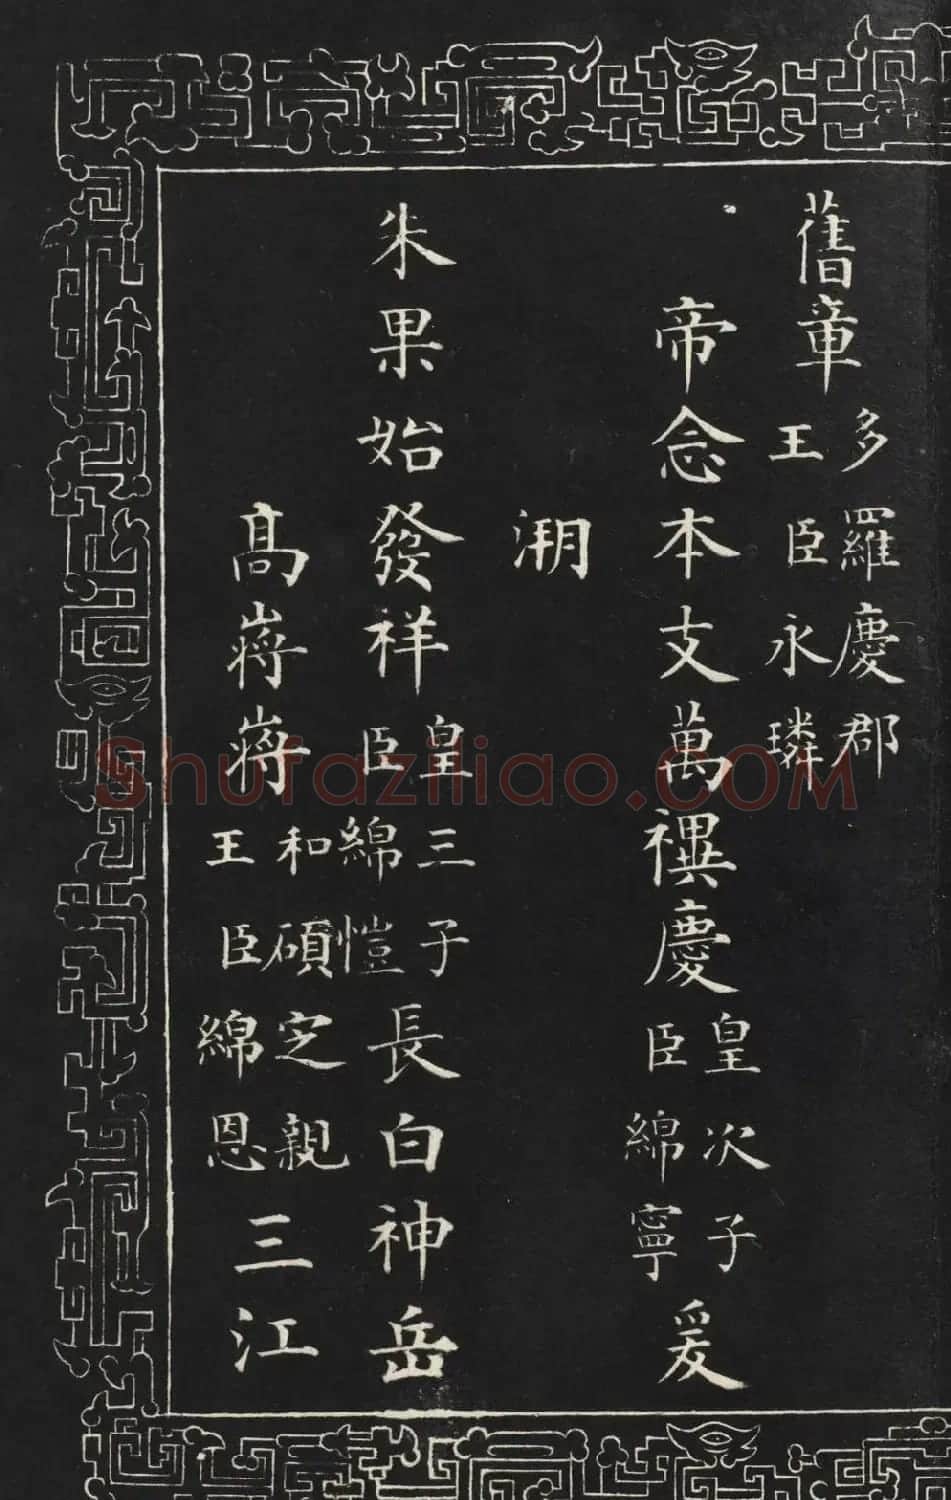 舊章
多羅慶郡
王臣永璘
帝念本支萬禩慶
皇次子
臣綿寧
爰
溯
朱果始發祥
皇三子
臣綿愷
長白神岳
高嶈嶈
和碩定親
王臣綿恩
三江
Shufaziliao.COM